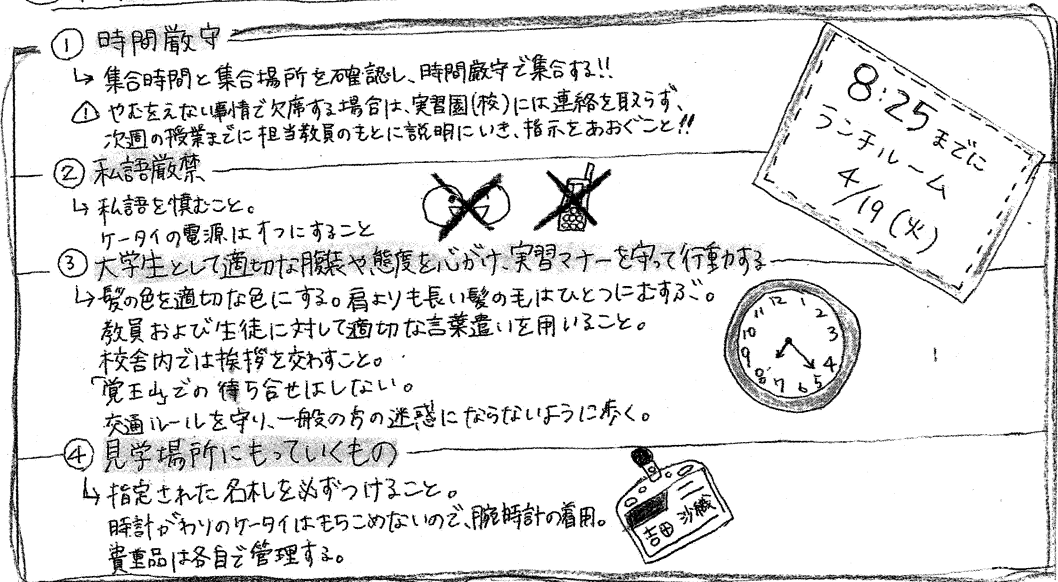 ① 時間厳守
↳ 集合時間と集合場所を確認し、時間厳守で集合する!!
やむをえない事情で欠席する場合は、実習園(校)には連絡を取らず、
次週の授業までに担当教員のもとに説明にいき、指示をあおぐこと!!
8:25までに
ランチルーム
4/19(火)
② 私語厳禁
↳ 私語を慎むこと。
ケータイの電源はオフにすること
③ 大学生として適切な服装や、態度を心がけ、実習マナーを守って行動する
↳ 髪の色を適切な色にする。肩よりも長い髪の毛はひとつにむすぶ。
教員および生徒に対して適切な言葉遣いを用いること。
校舎内では挨拶を交わすこと。
「覚王山」での待ち合せはしない。
交通ルールを守り、一般の方の迷惑にならないように歩く。
12 1 2 3 4 5 6 7 8 9 10 11
④ 見学場所にもっていくもの
↳ 指定された名札を必ずつけること。
時計がわりのケータイはもちこめないので、腕時計の着用。
貴重品は各自で管理する。
吉田 沙織